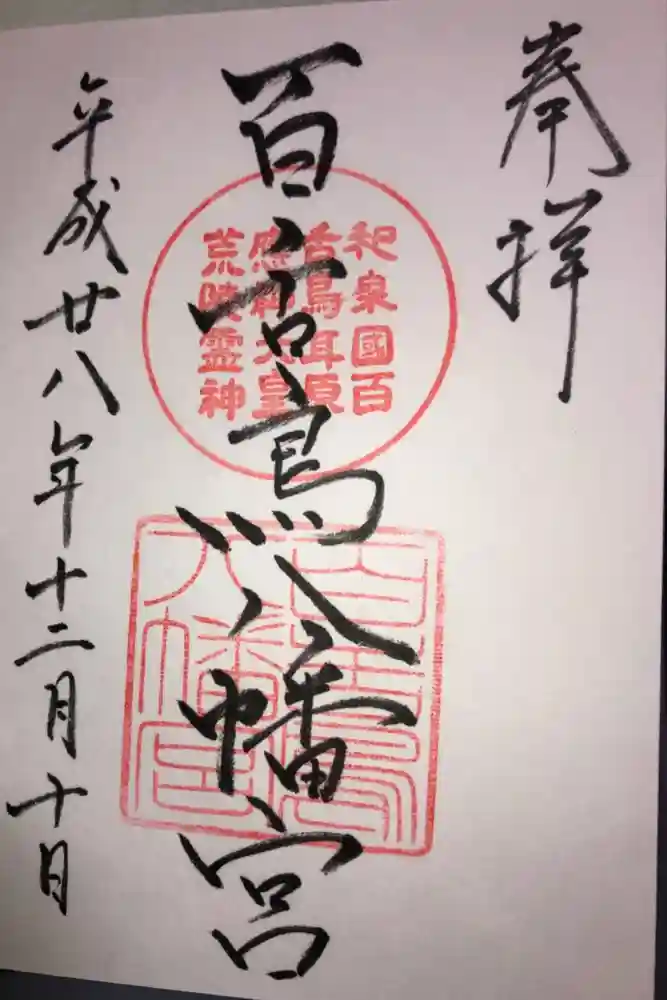 奉拝
百舌鳥八幡宮
和泉國百
舌鳥耳原
應神天皇
荒陵霊神
百舌鳥
八幡宮
平成廿八年十二月十日